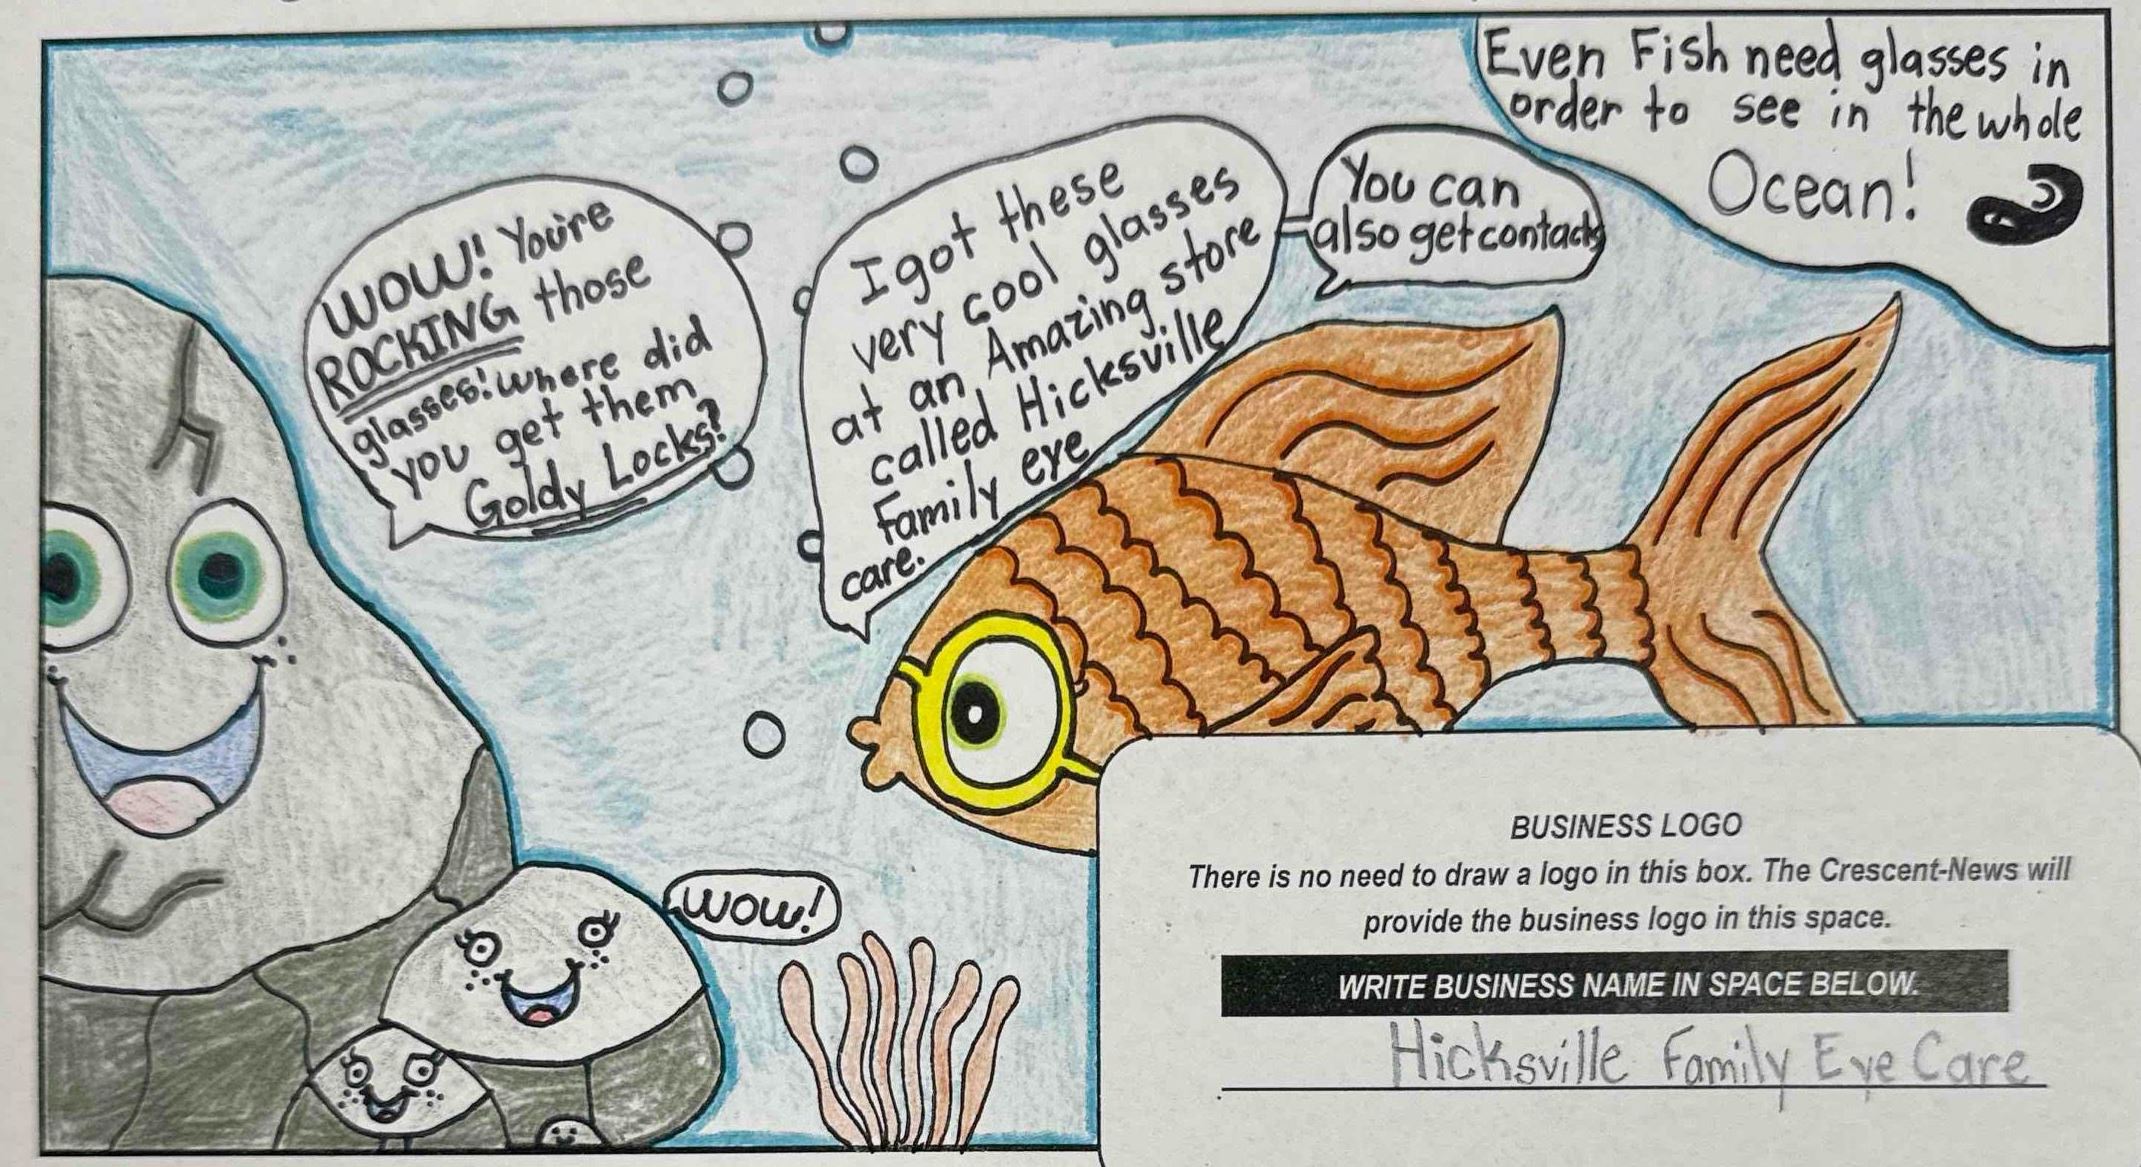 Even Fish need glasses in
order to see in the whole
Ocean!
WOW! You're
ROCKING those
glasses! where did
you get them
Goldy Locks?
I got these
very cool glasses
at an Amazing store
called Hicksville
Family eye
care.
You can
also get contacts
WOW!
BUSINESS LOGO
There is no need to draw a logo in this box. The Crescent-News will
provide the business logo in this space.
WRITE BUSINESS NAME IN SPACE BELOW.
Hicksville Family Eye Care